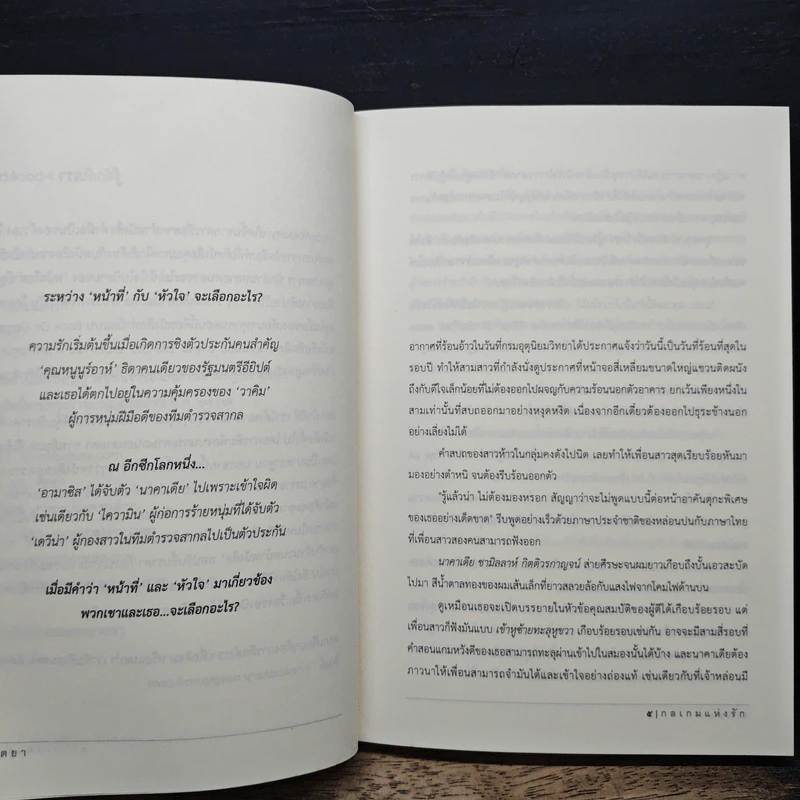 ระหว่าง ‘หน้าที่’ กับ ‘หัวใจ’ จะเลือกอะไร?
ความรักเริ่มต้นขึ้นเมื่อเกิดการชิงตัวประกันคนสำคัญ
‘คุณหนูนูร์อาห์’ ธิดาคนเดียวของรัฐมนตรีอียิปต์
และเธอได้ตกไปอยู่ในความคุ้มครองของ ‘วาคิม’
ผู้การหนุ่มฝีมือดีของทีมตำรวจสากล
ณ อีกซีกโลกหนึ่ง...
‘อามาซิส’ ได้จับตัว ‘นาคาเดีย’ ไปเพราะเข้าใจผิด
เช่นเดียวกับ ‘ไความิน’ ผู้ก่อการร้ายหนุ่มที่ได้จับตัว
‘เดวีน่า’ ผู้กองสาวในทีมตำรวจสากลไปเป็นตัวประกัน
เมื่อมีคำว่า ‘หน้าที่’ และ ‘หัวใจ’ มาเกี่ยวข้อง
พวกเขาและเธอ...จะเลือกอะไร?
ตยา
อากาศที่ร้อนอ้าวในวันที่กรมอุตุนิยมวิทยาได้ประกาศแจ้งว่าวันนี้เป็นวันที่ร้อนที่สุดใน
รอบปี ทำให้สามสาวที่กำลังนั่งดูประกาศที่หน้าจอสี่เหลี่ยมขนาดใหญ่แขวนติดผนัง
ถึงกับดีใจเล็กน้อยที่ไม่ต้องออกไปผจญกับความร้อนนอกตัวอาคาร ยกเว้นเพียงหนึ่งใน
สามเท่านั้นที่สบถออกมาอย่างหงุดหงิด เนื่องจากอีกเดี๋ยวต้องออกไปธุระข้างนอก
อย่างเลี่ยงไม่ได้
คำสบถของสาวห้าวในกลุ่มคงดังไปนิด เลยทำให้เพื่อนสาวสุดเรียบร้อยหันมา
มองอย่างตำหนิ จนต้องรีบร้อนออกตัว
"รู้แล้วน่า ไม่ต้องมองหรอก สัญญาว่าจะไม่พูดแบบนี้ต่อหน้าอาคันตุกะพิเศษ
ของเธออย่างเด็ดขาด" รีบพูดอย่างเร็วด้วยภาษาประจำชาติของหล่อนปนกับภาษาไทย
ที่เพื่อนสาวสองคนสามารถฟังออก
นาคาเดีย ชามิลลาห์ กิตติวรกาญจน์ ส่ายศีรษะจนผมยาวเกือบถึงบั้นเอวสะบัด
ไปมา สีน้ำตาลทองของผมเส้นเล็กที่ยาวสลวยล้อกับแสงไฟจากโคมไฟด้านบน
ดูเหมือนเธอจะเปิดบรรยายในหัวข้อคุณสมบัติของผู้ดีได้เกือบร้อยรอบ แต่
เพื่อนสาวก็ฟังมันแบบ เข้าหูซ้ายทะลุหูขวา เกือบร้อยรอบเช่นกัน อาจจะมีสามสี่รอบที่
คำสอนแกมหวังดีของเธอสามารถทะลุผ่านเข้าไปในสมองนั้นได้บ้าง และนาคาเดียต้อง
ภาวนาให้เพื่อนสามารถจำมันได้และเข้าใจอย่างถ่องแท้ เช่นเดียวกับที่เจ้าหล่อนมี
๕ | กลเกมแห่งรัก